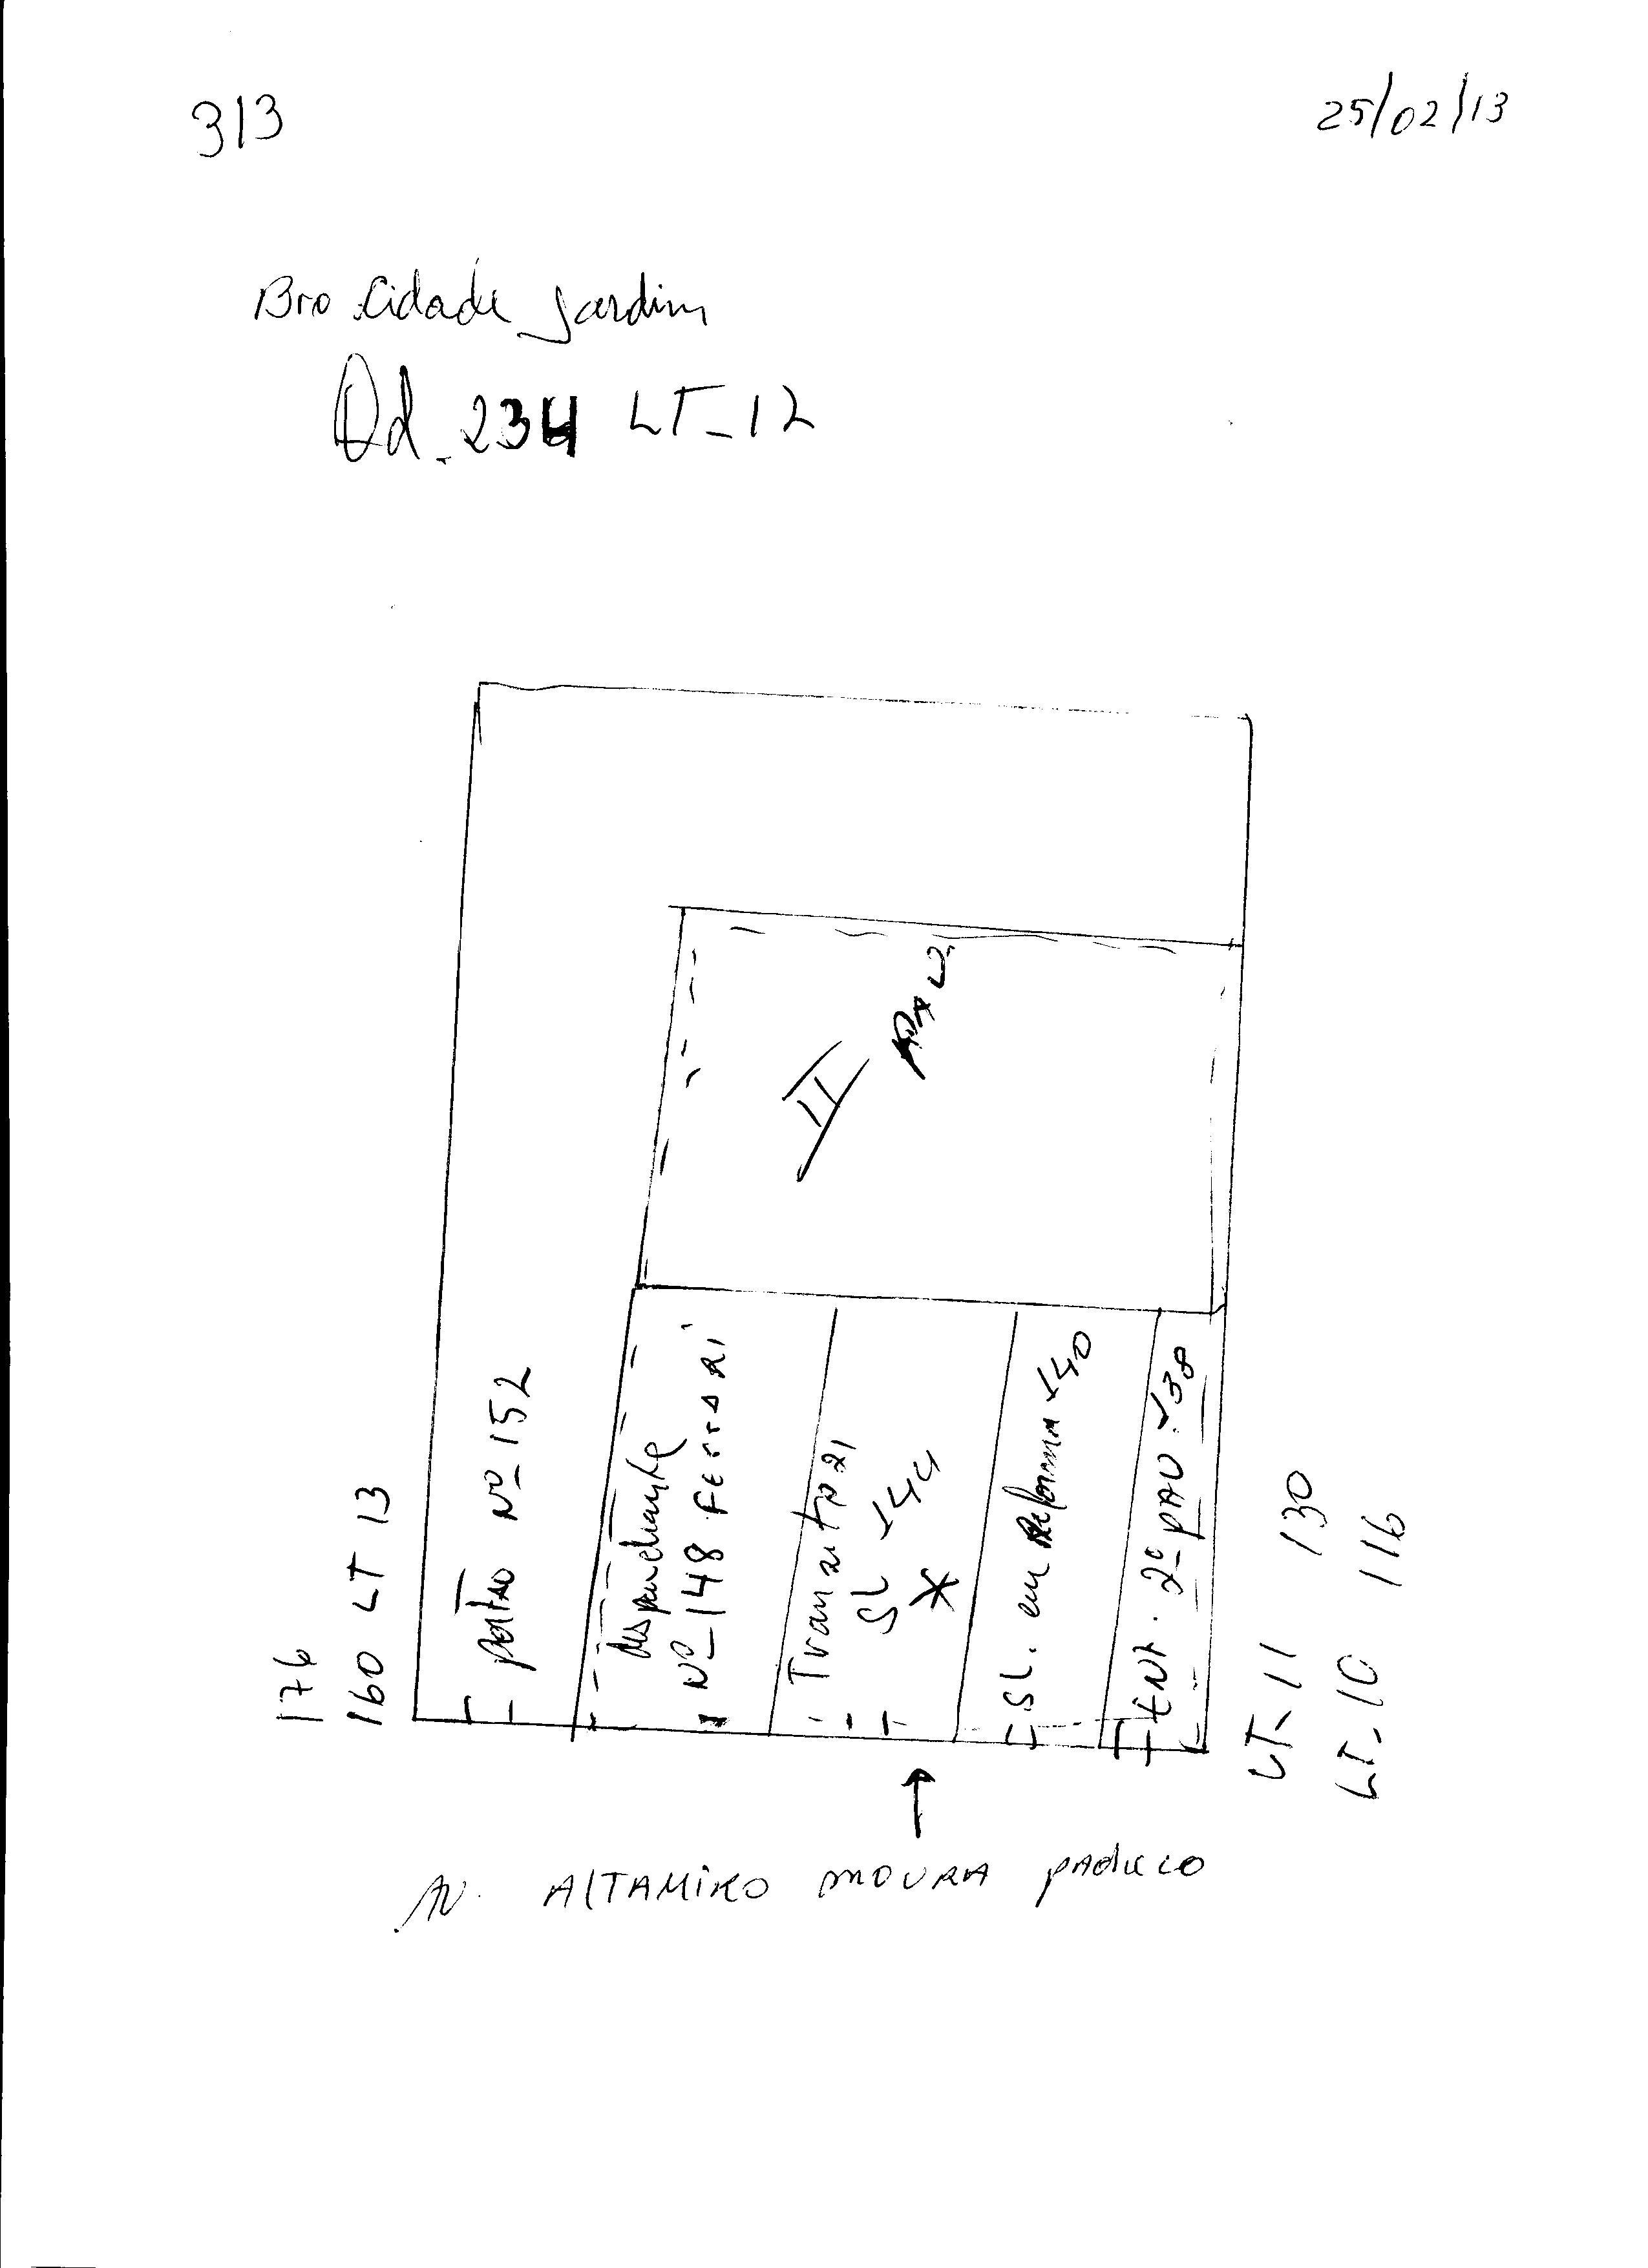 313
25/02/13
Bro Cidade Jardim
Qd. 234 LT-12
II PAV.
176
160 LT 13
portão Nº 152
despachante
Nº 148 Ferrari
Tranzito 21
SL 144
SL. em Reforma 140
ENT. 2º PAV. 138
LT-11 130
LT-10 116
AV. AlTAMiRO MOURA PAdUCO